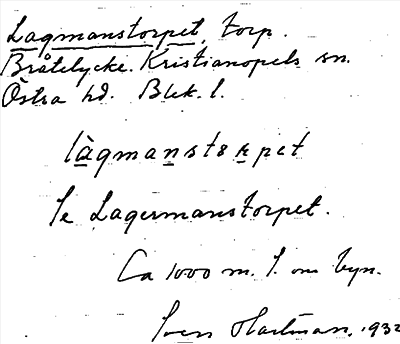 Lagmanstorpet, torp.
Bråtelycke. Kristianopels sn.
Östra hd. Blek. l.
làgmanstɷrpet
Se Lagermanstorpet.
Ca 1000 m. S. om byn.
Sven Hartman. 1932